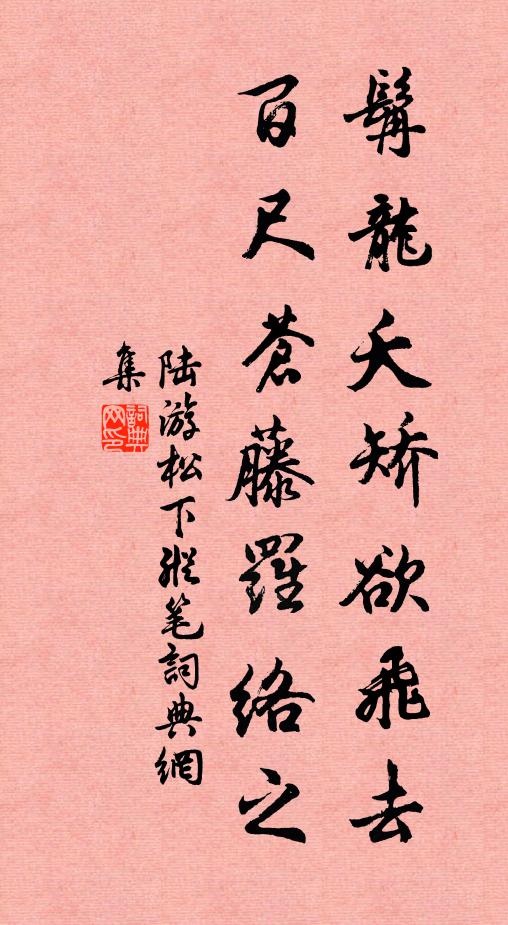 髯龍夭矯欲飛去
百尺蒼藤羅絡之
陸游松下縱笔詞典網
集
詞典
网印